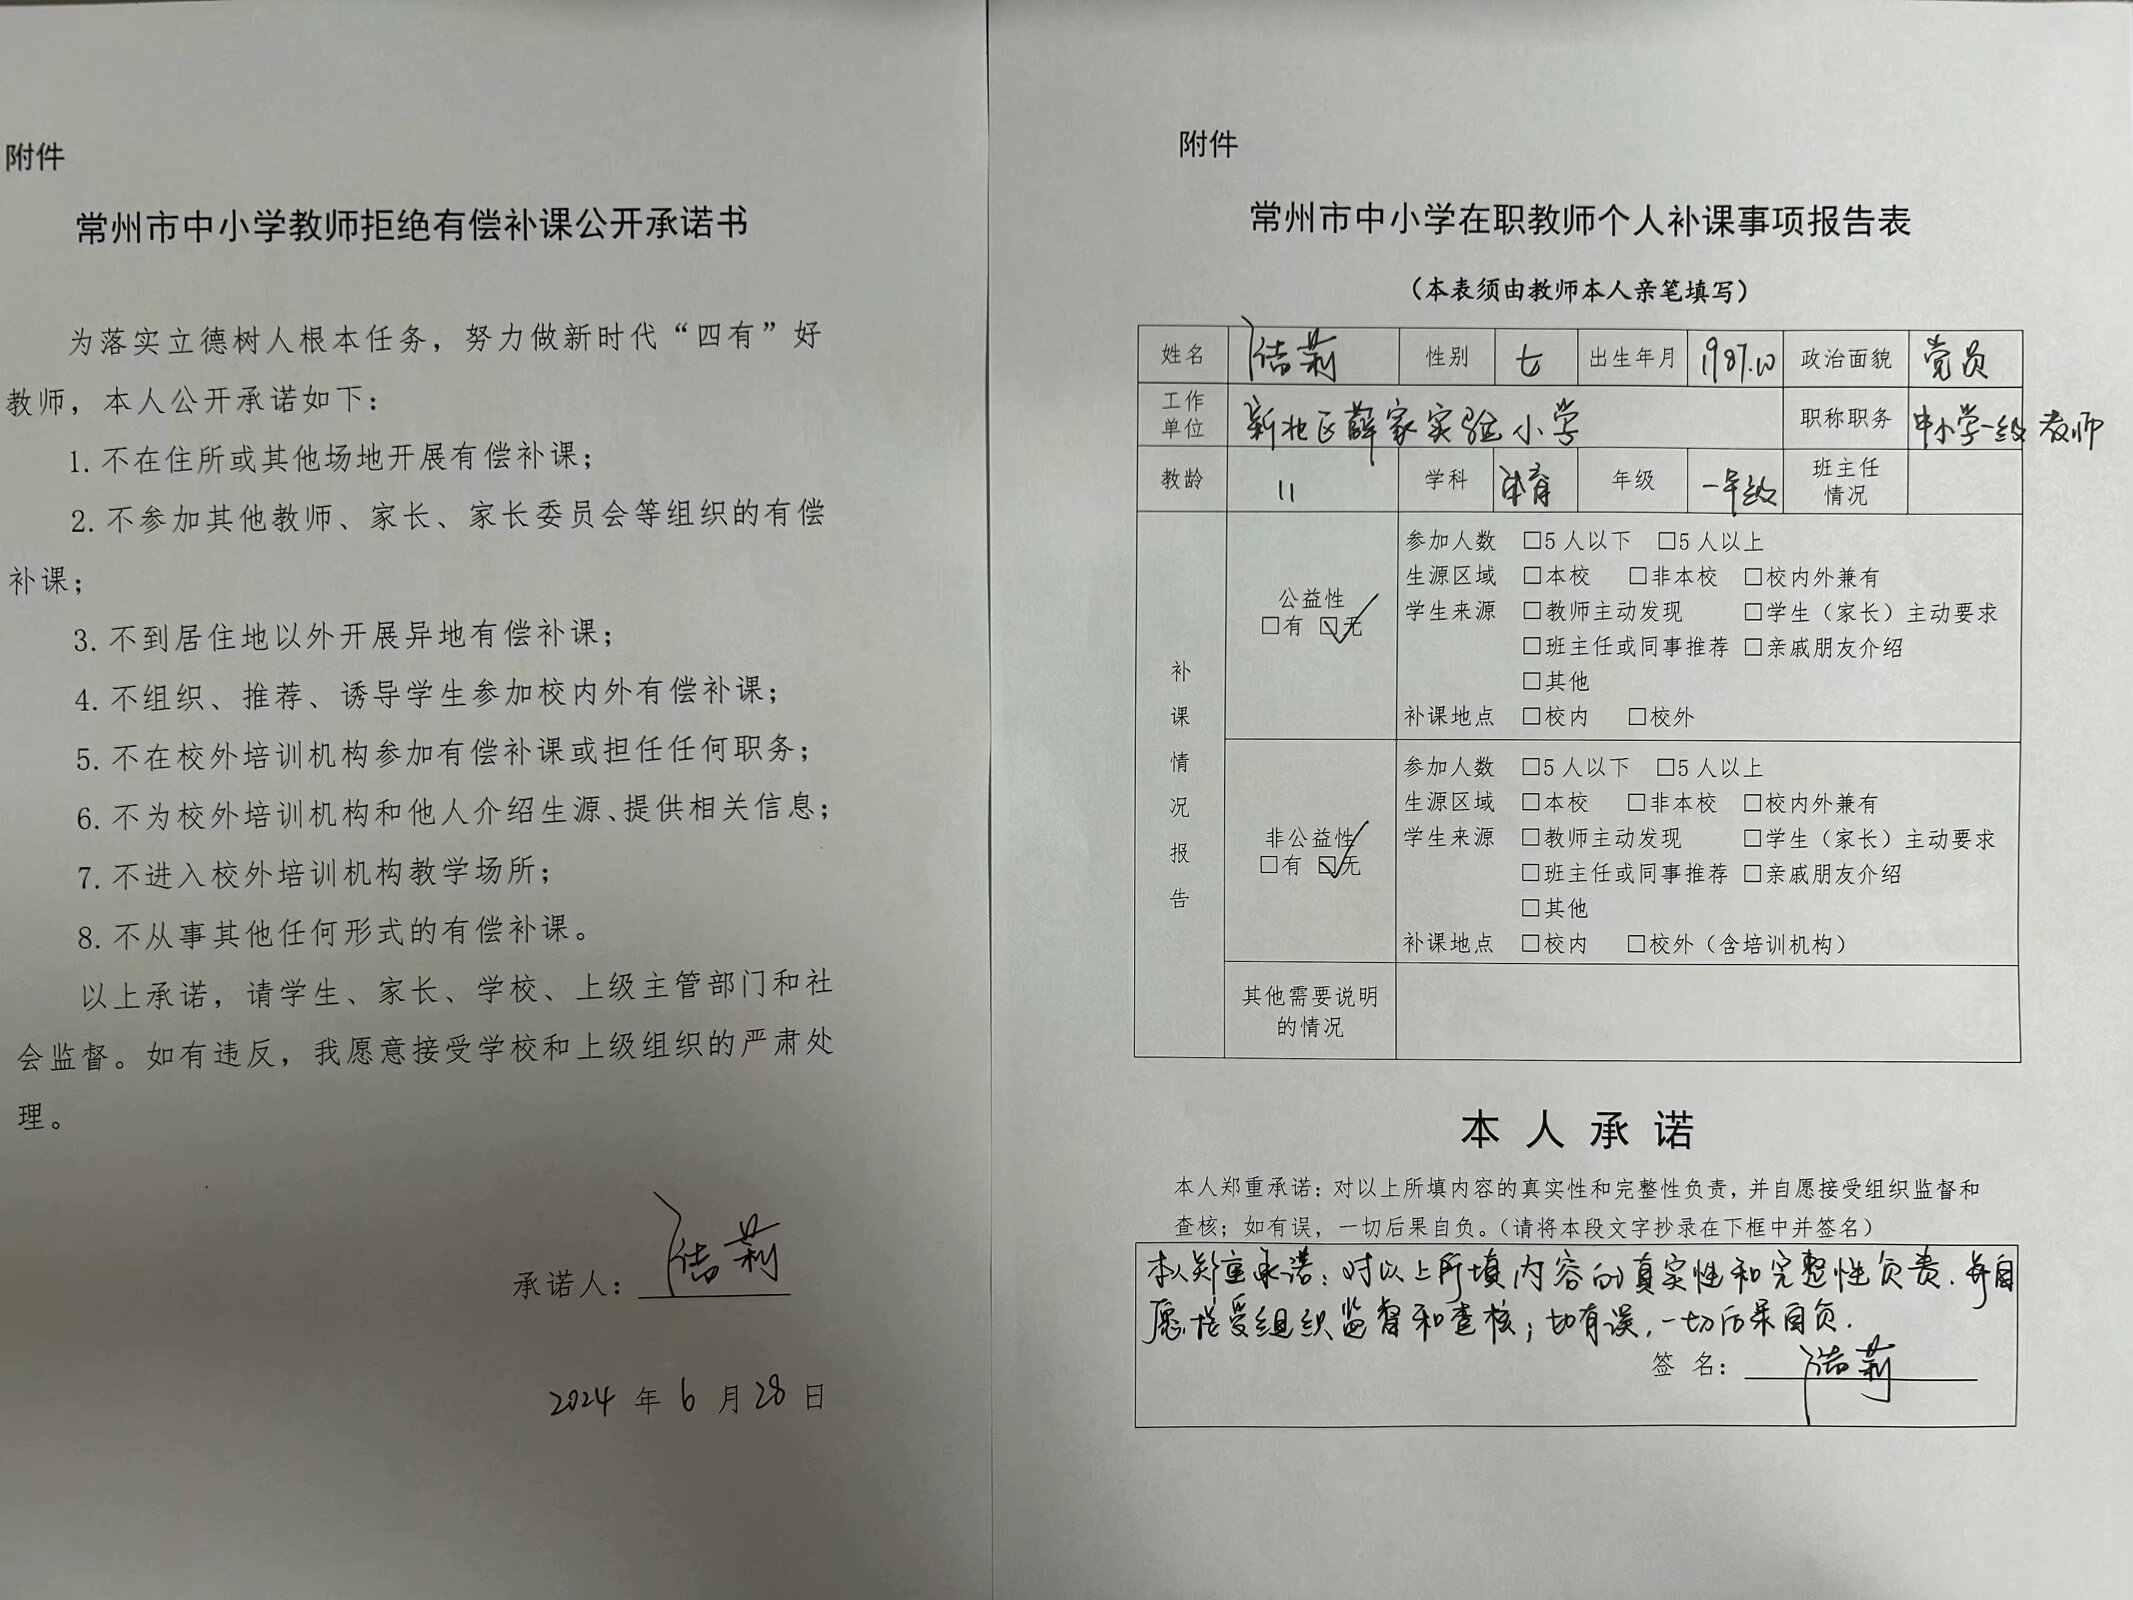 附件
常州市中小学教师拒绝有偿补课公开承诺书
为落实立德树人根本任务，努力做新时代“四有”好
教师，本人公开承诺如下：
1. 不在住所或其他场地开展有偿补课；
2. 不参加其他教师、家长、家长委员会等组织的有偿
补课；
3. 不到居住地以外开展异地有偿补课；
4. 不组织、推荐、诱导学生参加校内外有偿补课；
5. 不在校外培训机构参加有偿补课或担任任何职务；
6. 不为校外培训机构和他人介绍生源、提供相关信息；
7. 不进入校外培训机构教学场所；
8. 不从事其他任何形式的有偿补课。
以上承诺，请学生、家长、学校、上级主管部门和社
会监督。如有违反，我愿意接受学校和上级组织的严肃处
理。
承诺人：莉
2024 年 6 月 28 日
附件
常州市中小学在职教师个人补课事项报告表
（本表须由教师本人亲笔填写）
姓名 莉 性别 女 出生年月 1987.10 政治面貌 党员
工作单位 新北区薛家实验小学 职称职务 中小学一级教师
教龄 11 学科 体育 年级 一年级 班主任情况
补课情况报告
公益性
□有 ☑无
参加人数 □5 人以下 □5 人以上
生源区域 □本校 □非本校 □校内外兼有
学生来源 □教师主动发现 □学生（家长）主动要求
□班主任或同事推荐 □亲戚朋友介绍
□其他
补课地点 □校内 □校外
非公益性
□有 ☑无
参加人数 □5 人以下 □5 人以上
生源区域 □本校 □非本校 □校内外兼有
学生来源 □教师主动发现 □学生（家长）主动要求
□班主任或同事推荐 □亲戚朋友介绍
□其他
补课地点 □校内 □校外（含培训机构）
其他需要说明
的情况
本人承诺
本人郑重承诺：对以上所填内容的真实性和完整性负责，并自愿接受组织监督和
查核；如有误，一切后果自负。（请将本段文字抄录在下框中并签名）
本人郑重承诺：对以上所填内容的真实性和完整性负责．并自
愿接受组织监督和查核；切有误，一切后果自负．
签 名：莉